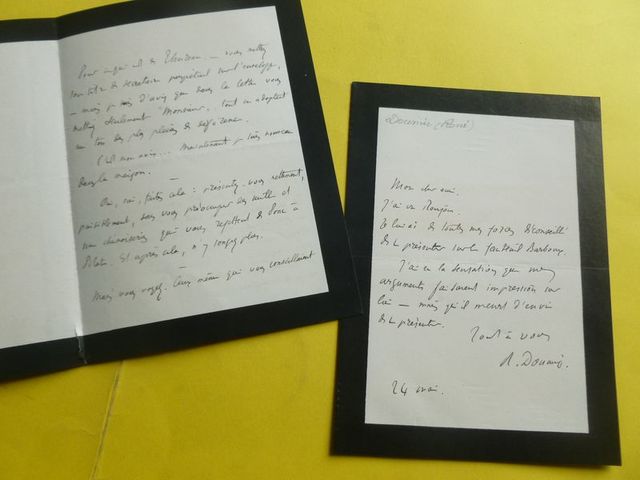 Pour ce qui est de
son titre de secrétaire perpétuel sur l'enveloppe,
mais je suis d'avis que dans la lettre vous
mettiez seulement Monsieur, tout en adoptant
un ton des plus pleins de déférence.
C'est mon avis... Maintenant je suis nouveau
dans la maison.
Oui, oui, faites cela : présentez-vous nettement,
paisiblement, sans vous préoccuper des mille et
une chinoiseries qui vous reportent de
Et après cela, n'y songez plus.
Mais vous voyez. Ceux même qui vous conseillaient
Doumic (René)
Mon cher ami.
J'ai vu Roujon.
Je lui ai de toutes mes forces déconseillé
de se présenter sur le fauteuil Barboux.
J'ai eu la sensation que mes
arguments faisaient impression sur
lui — mais qu'il meurt d'envie
de se présenter.
Tout à vous
R. Doumic.
24 mai.